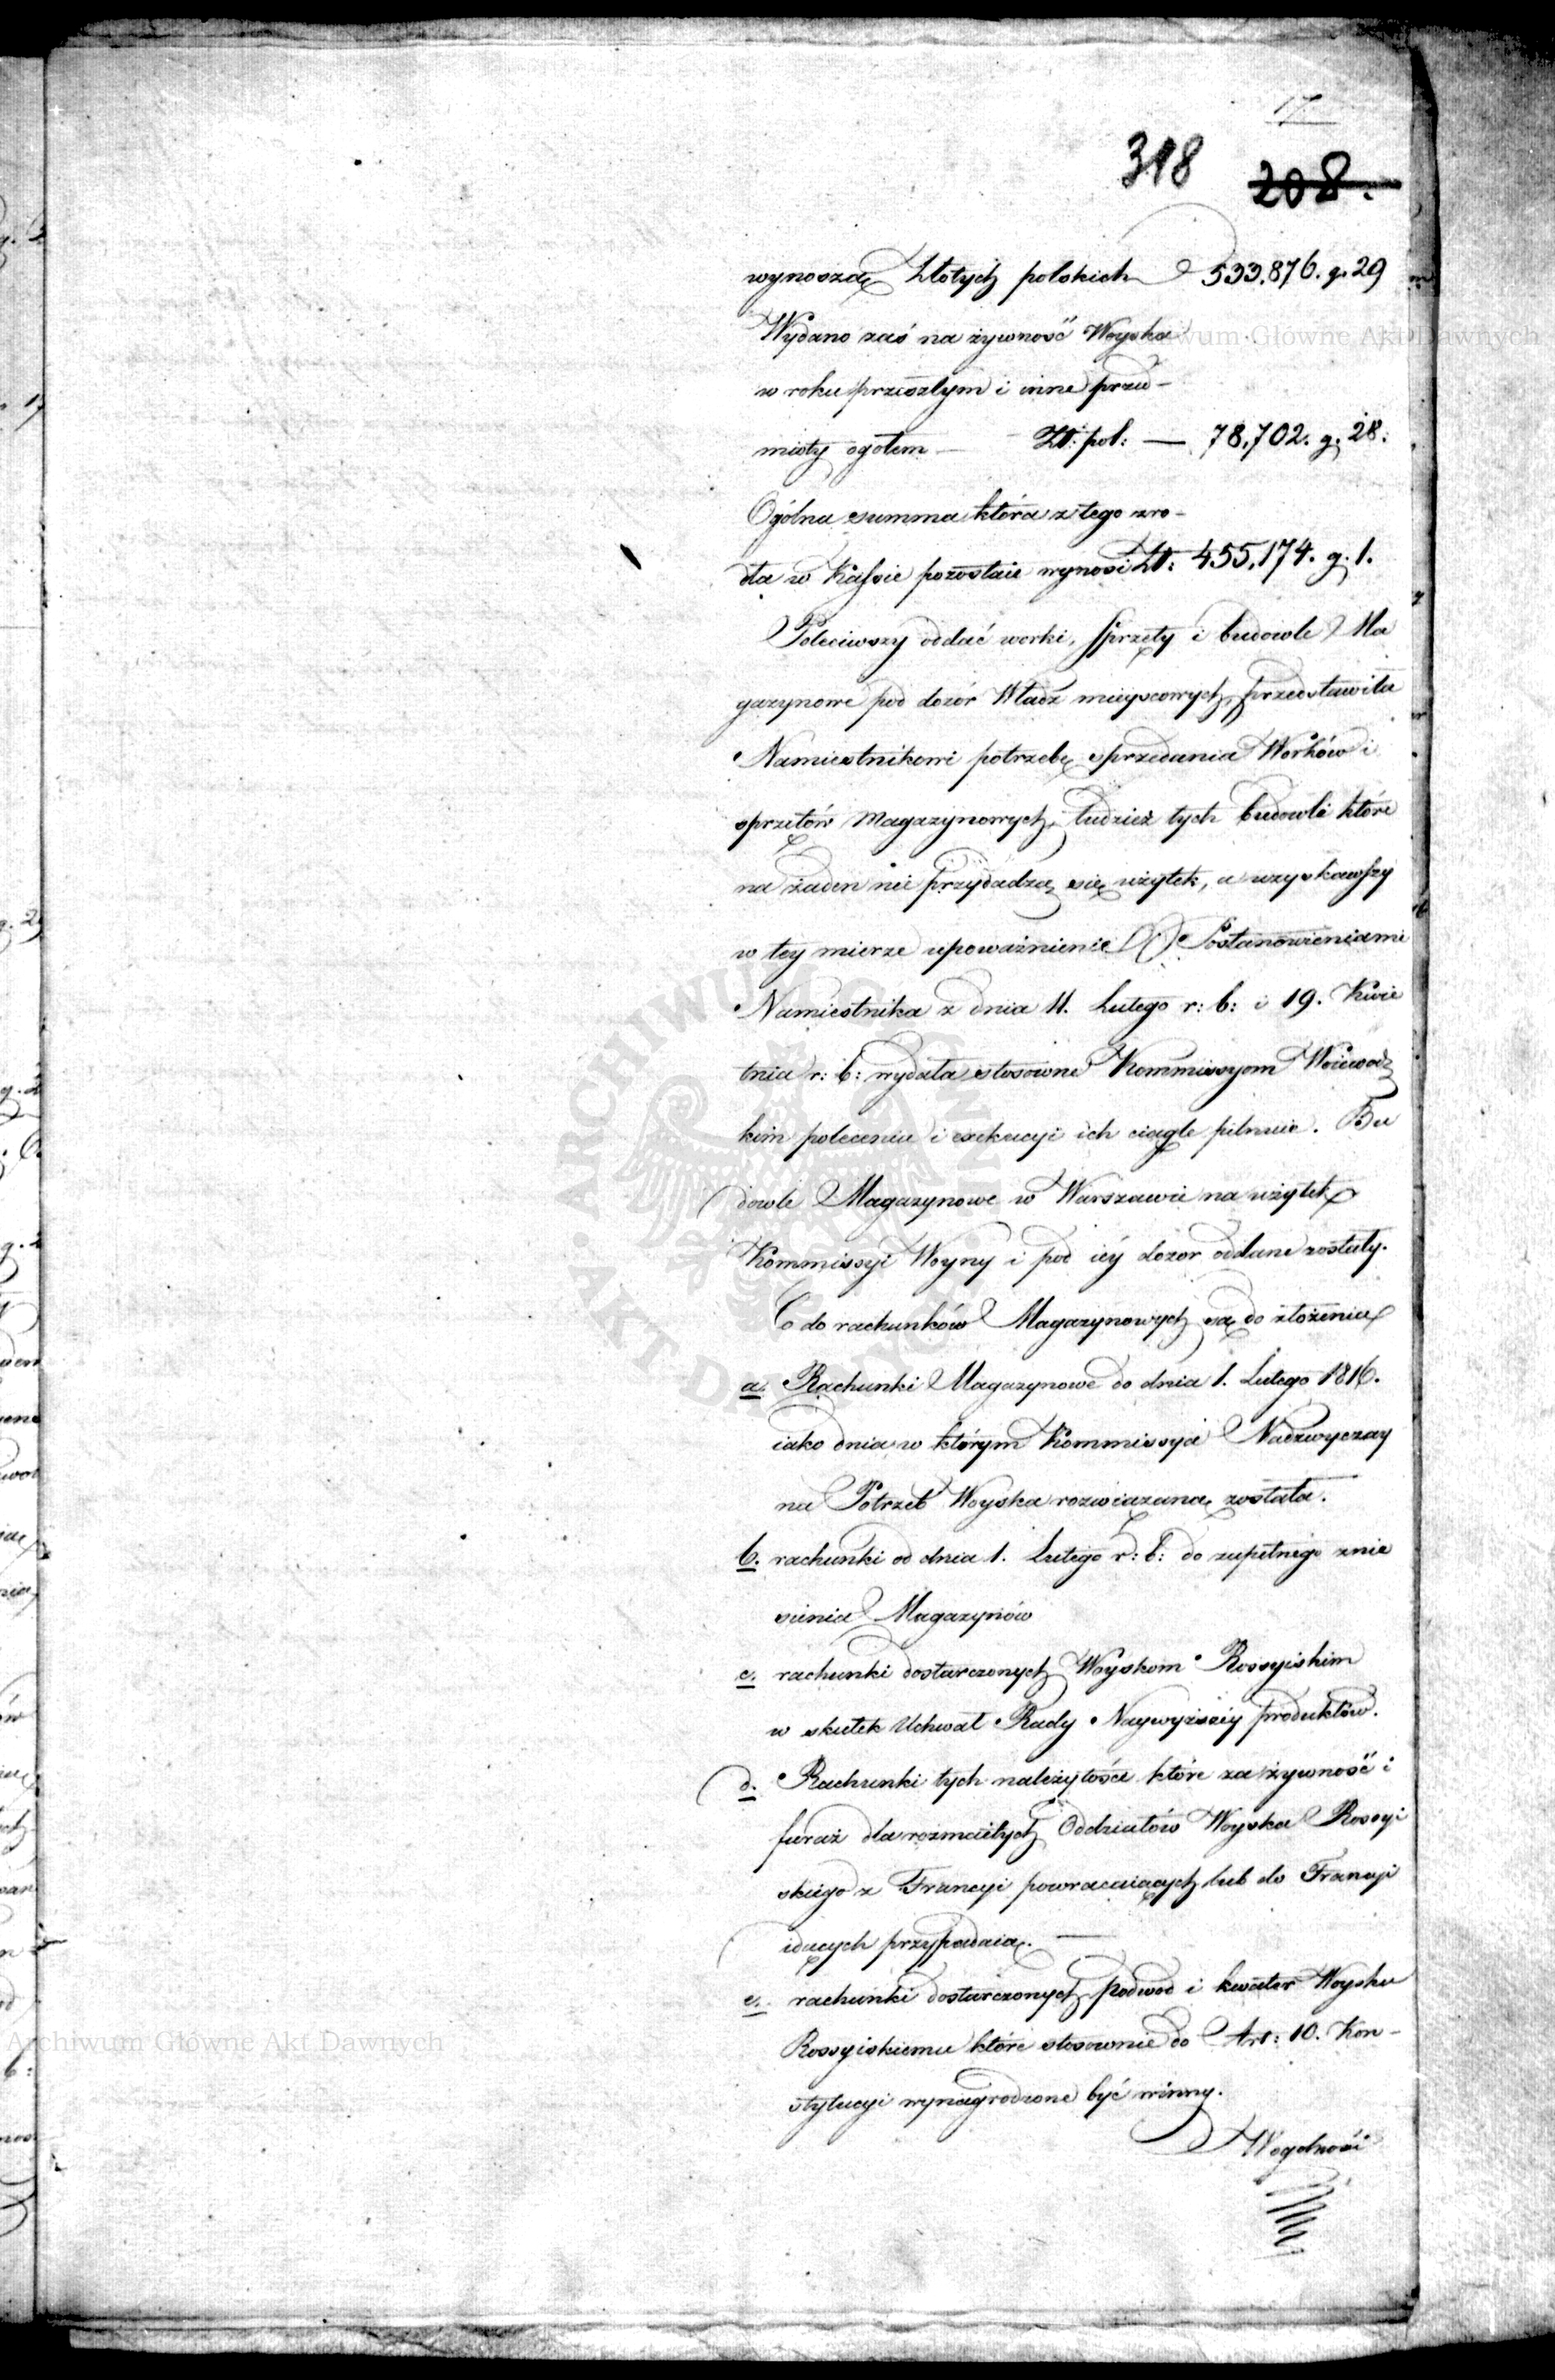 17
318 208.
wynoszą Złotych polskich 533,876. g. 29
Wydano zaś na żywność Woyska
w roku przeszłym i inne przed-
mioty ogołem — Zł: pol: — 78,702. g. 28.
Ogólna summa która z tego zro-
dła w Kassie pozostaie wynosi Zł: 455,174. g. 1.
Poleciwszy oddać worki, sprzęty i budowle Ma
gazynowe pod dozór Władz mieyscowych, przedstawiła
Namiestnikowi potrzebę sprzedania Worków i
sprzętów Magazynowych, tudzież tych budowli które
na żaden nie przydadzą się użytek, a uzyskawszy
w tey mierze upoważnienie Postanowieniami
Namiestnika z dnia 11. Lutego r: b: i 19. Kwie
tnia r: b: wydała stosowne Kommissyom Woiewodz
kim polecenia i exekucyi ich ciągle pilnuie. Bu
dowle Magazynowe w Warszawie na użytek
Kommissyi Woyny i pod iéy dozor oddane zostały.
Co do rachunków Magazynowych są do złożenia
a. Rachunki Magazynowe do dnia 1. Lutego 1816.
iako dnia w którym Kommissya Nadzwyczay
na Potrzeb Woyska rozwiązaną została.
b. rachunki od dnia 1. Lutego r: b: do zupełnego znie
sienia Magazynów
c. rachunki dostarczonych Woyskom Rossyiskim
w skutek Uchwał Rady Naywyższéy produktów.
d. Rachunki tych należytości które za żywność i
furaż dla rozmaitych Oddziałów Woyska Rossyi
skiego z Francyi powracaiących lub do Francyi
idących przypadaią. —
e. rachunki dostarczonych podwod i kwater Woysku
Rossyiskiemu które stosownie do Art: 10. Kon-
stytucyi wynagrodzone być winny.
W ogolności
Archiwum Główne Akt Dawnych
ARCHIWUM GŁÓWNE AKT DAWNYCH
Archiwum Główne Akt Dawnych